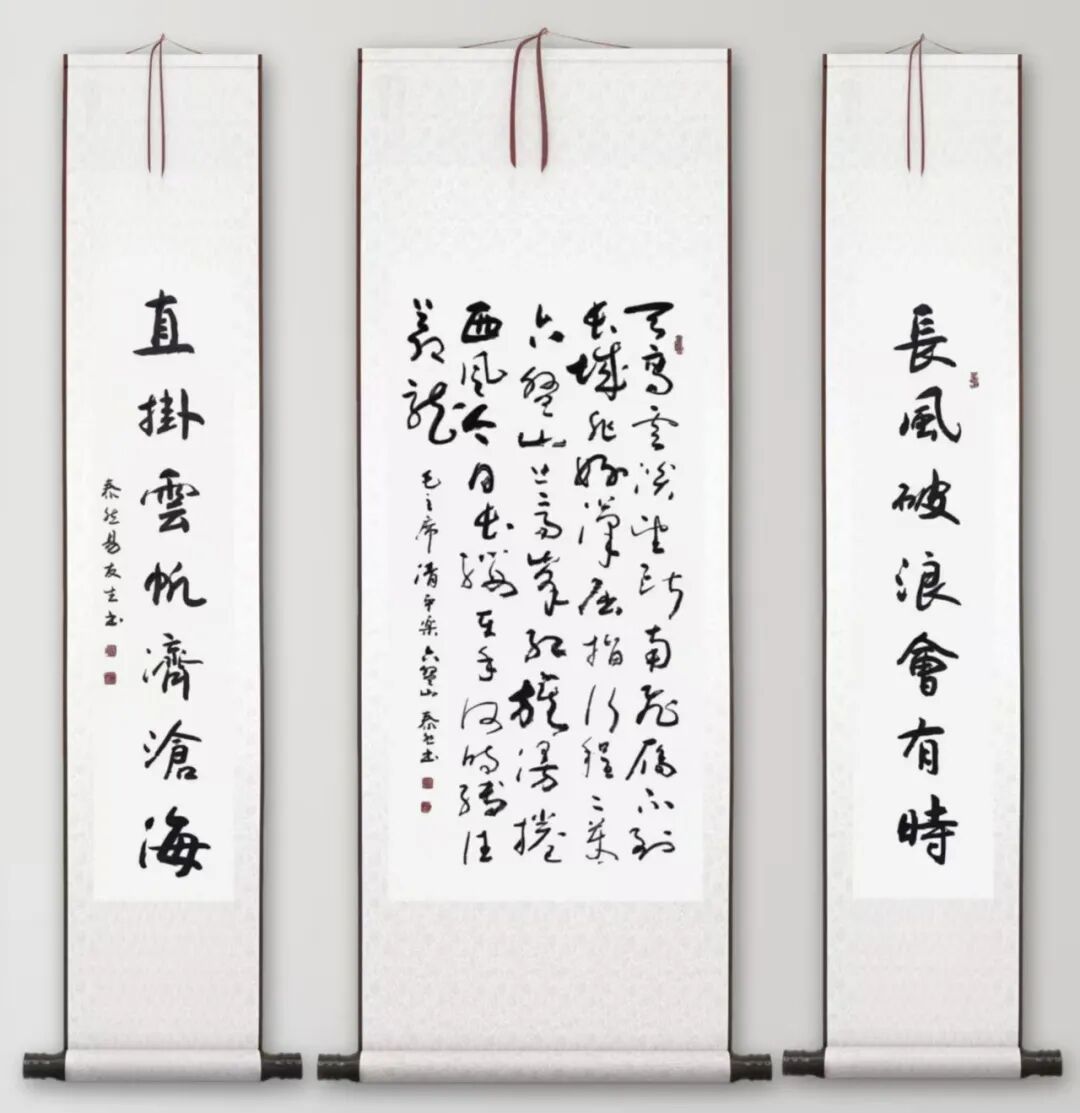 長風破浪會有時
天高雲淡望斷南飛雁不到
長城非好漢屈指行程二萬
六盤山上高峰紅旗漫捲
西風今日長纓在手何時縛住
蒼龍
毛主席清平樂六盤山 泰然书
直掛雲帆濟滄海
泰然易友书